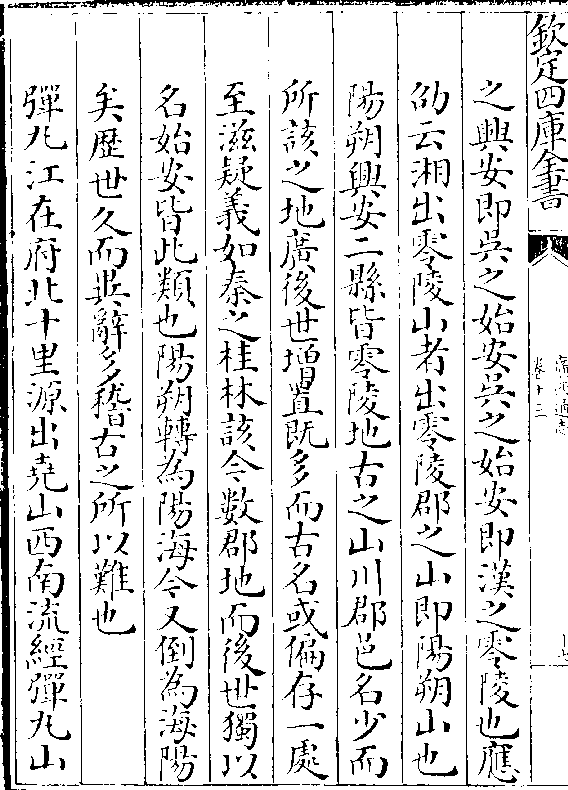 欽定四庫全書
之興安即吳之始安吳之始安即漢之零陵也應
劭云湘出零陵山者出零陵郡之山即陽朔山也
陽朔興安二縣皆零陵地古之山川郡邑名少而
所該之地廣後世增置既多而古名或偏存一處
至滋疑義如秦之桂林該今數郡地而後世獨以
名始安皆此類也陽朔轉為陽海今又倒為海陽
矣歷世久而異辭多稽古之所以難也
彈丸江在府北十里源出堯山西南流經彈丸山